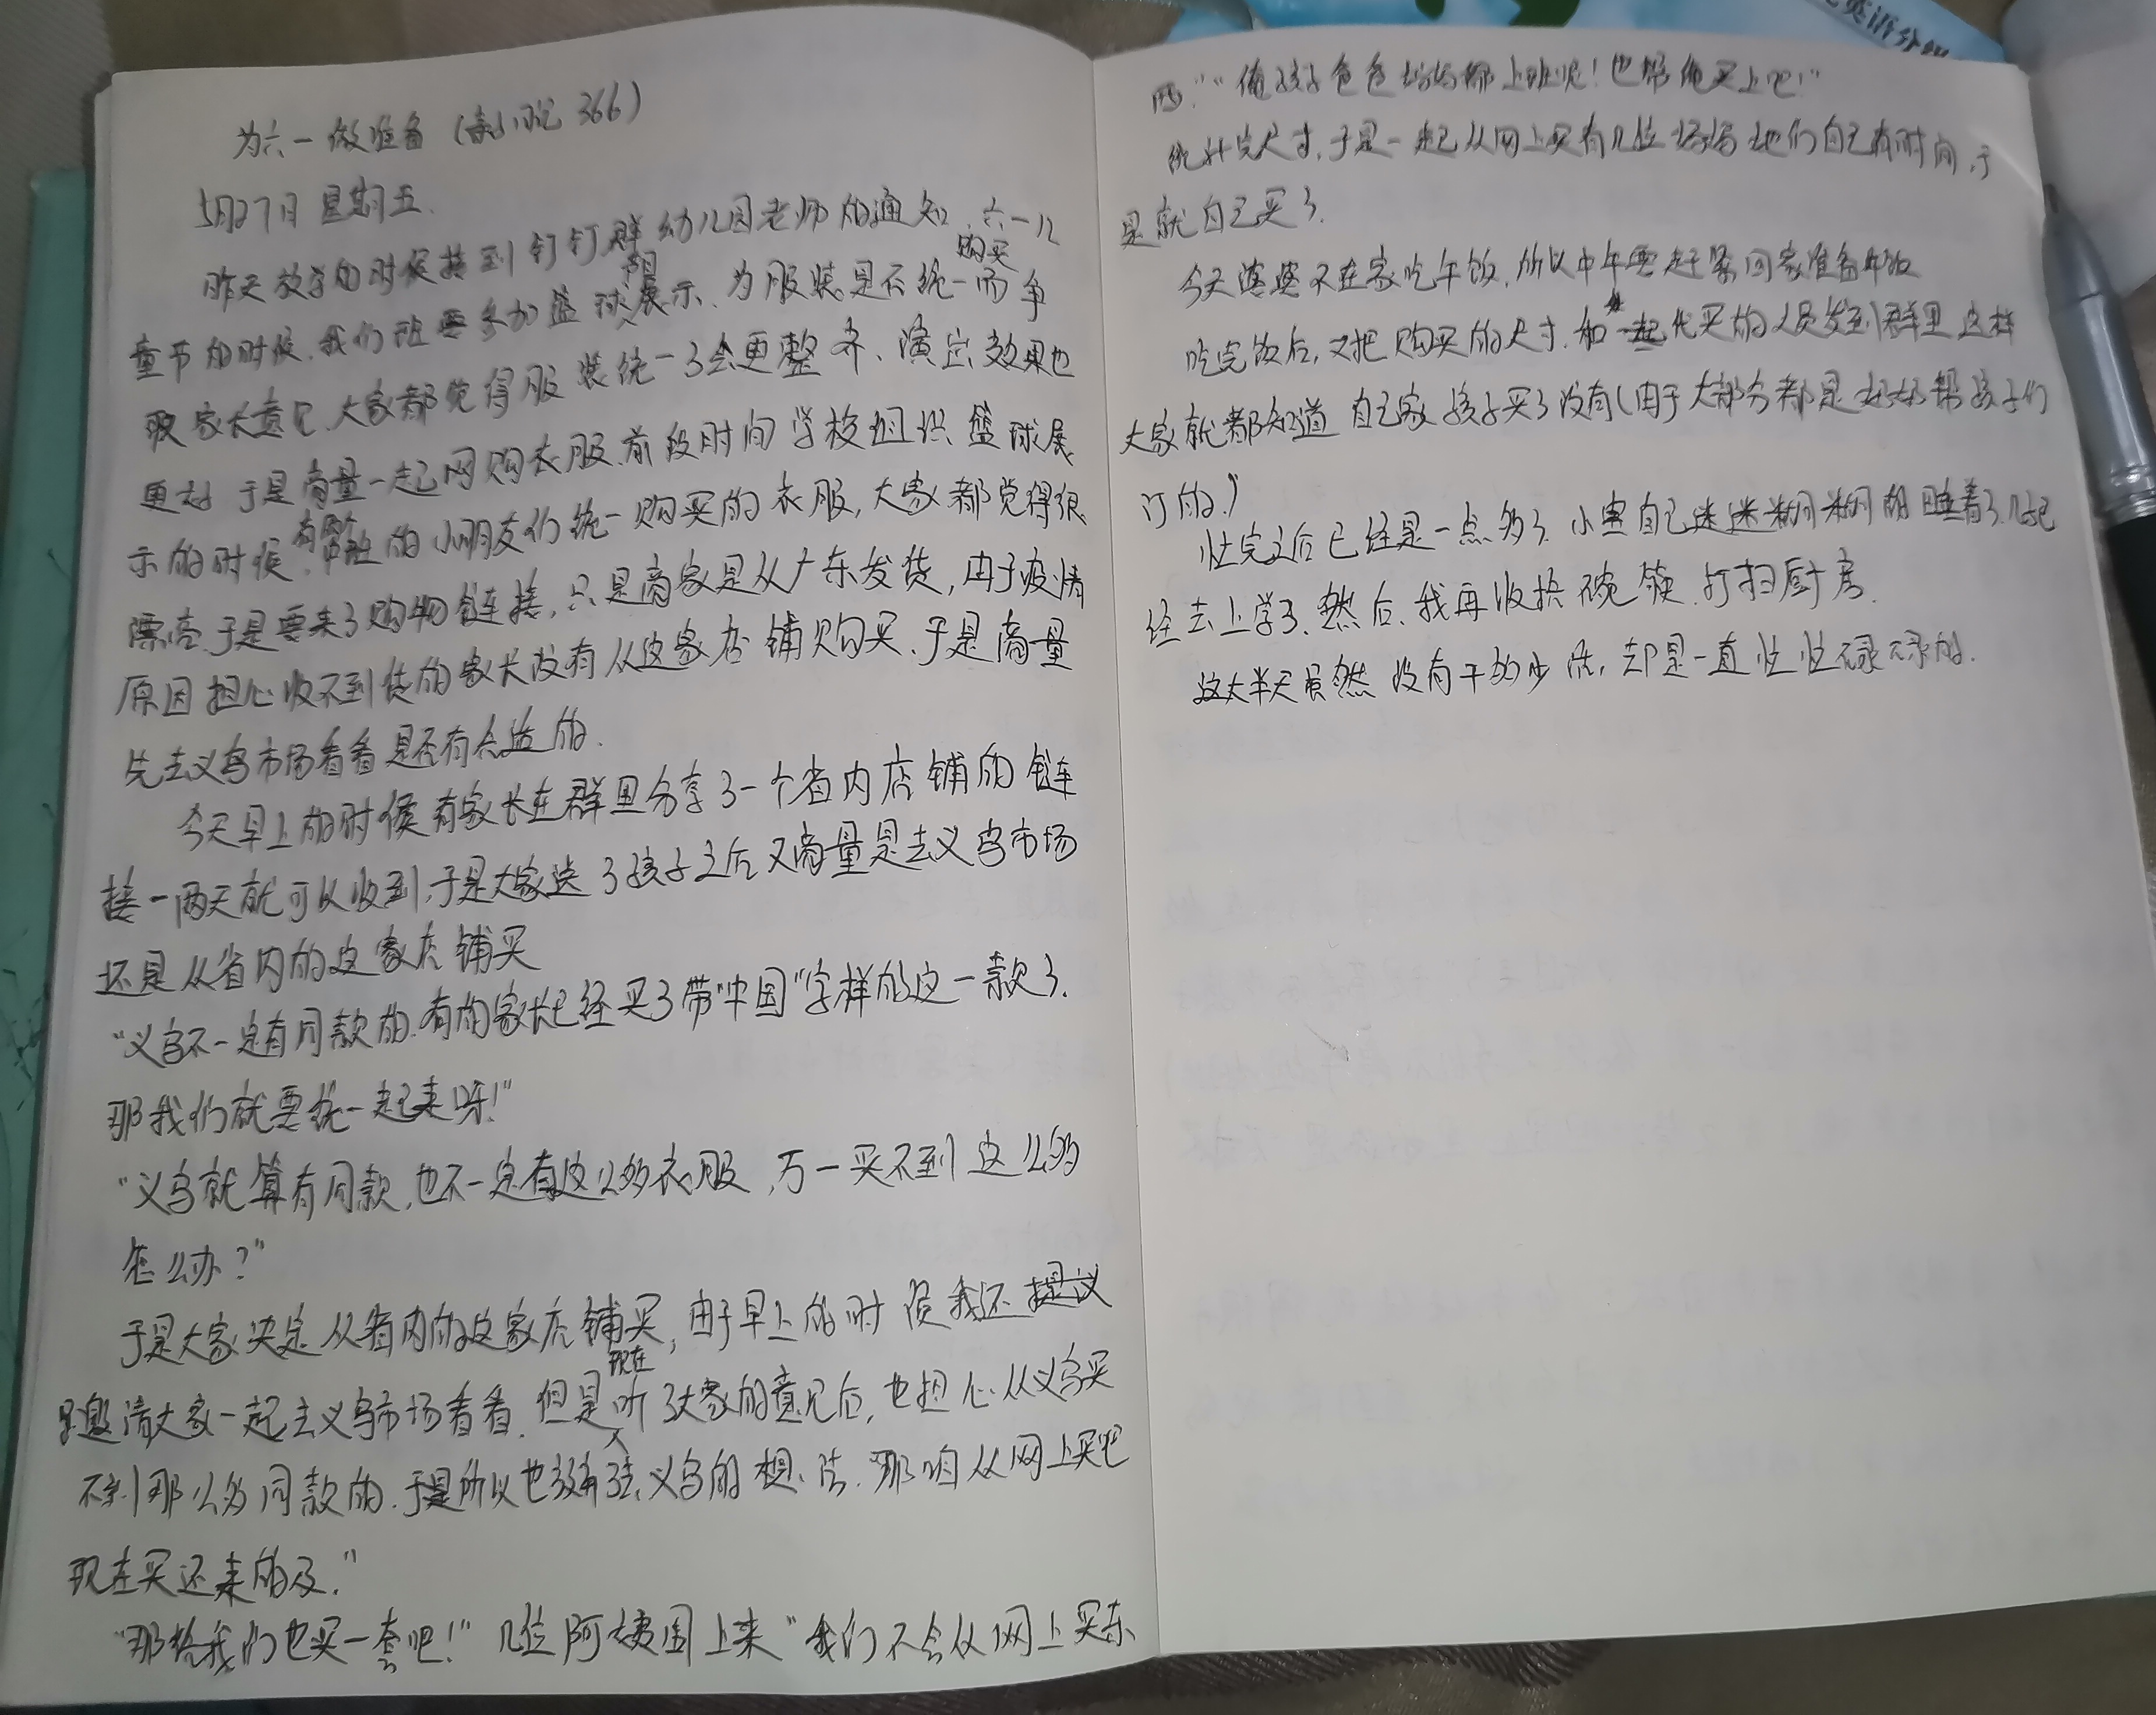 为六一做准备 (袁小悦 366)
5月27日 星期五.
昨天放学的时候接到钉钉群幼儿园老师的通知,六一儿
童节的时候,我们班要参加篮球展示、为购买服装是否统一而争
取家长意见,大家都觉得服装统一了会更整齐、演出效果也
更好 于是商量一起网购衣服.前段时间学校组织篮球展
示的时候,的小朋友们统一购买的衣服,大家都觉得很
漂亮.于是要来了购物链接,只是商家是从广东发货,由于疫情
原因担心收不到货的家长没有从这家店铺购买、于是商量
先去义乌市场看看是否有合适的.
今天早上的时候有家长在群里分享了一个省内店铺的链
接一两天就可以收到,于是大家送了孩子之后又商量是去义乌市场
还是从省内的这家店铺买
“义乌不一定有同款的.有的家长已经买了带“中国”字样的这一款了.
那我们就要统一起来呀!”
“义乌就算有同款,也不一定有这么多衣服,万一买不到这么多
怎么办?”
于是大家决定从省内的这家店铺买,由于早上的时候我还提议
邀请大家一起去义乌市场看看.但是现在听了大家的意见后,也担心从义乌买
不到那么多同款的.于是所以也放弃了去义乌的想法.“那咱从网上买吧
现在买还来的及.”
“那给我们也买一套吧!” 几位阿姨围上来“我们不会从网上买东
西.”“俺孩子爸爸妈妈都上班呢!也帮俺买上吧!”
统计完尺寸,于是一起从网上买有几位妈妈她们自己有时间,于
是就自己买了.
今天婆婆不在家吃午饭,所以中午要赶紧回家准备午饭
吃完饭后,又把购买的尺寸.和一起代买的人员发到群里 这样
大家就都知道 自己家孩子买了没有(由于大部分都是奶奶帮孩子们
订的.)
忙完之后已经是一点多了.小宝自己迷迷糊糊的睡着了.儿已
经去上学了、然后、我再收拾碗筷.打扫厨房.
这大半天虽然没有干多少活,却是一直忙忙碌碌的.